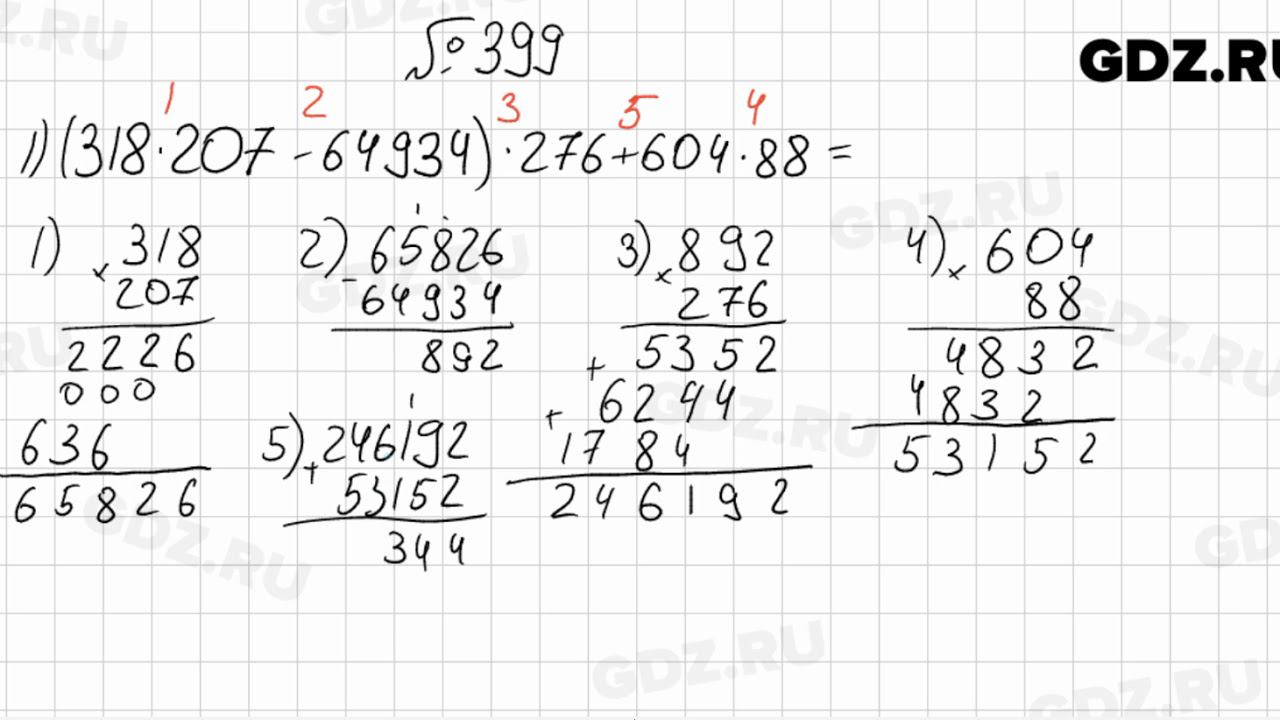 №399
GDZ.RU
1 2 3 5 4
1) (318·207 - 64934)·276 + 604·88 =
1) × 318
207
2226
000
636
65826
2) - 65826
64934
892
3) × 892
276
+ 5352
+ 6244
1784
246192
4) × 604
88
4832
4832
53152
5) + 246192
53152
344